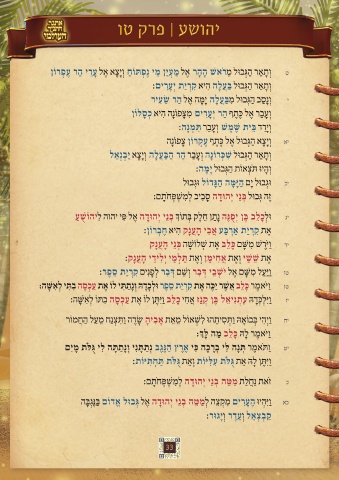 יהושע | פרק טו
אתגר
התנ"ך
ט וְתָאַר הַגְּבוּל מֵרֹאשׁ הָהָר אֶל מַעְיַן מֵי נֶפְתּוֹחַ וְיָצָא אֶל עָרֵי הַר עֶפְרוֹן
וְתָאַר הַגְּבוּל בַּעֲלָה הִיא קִרְיַת יְעָרִים:
י וְנָסַב הַגְּבוּל מִבַּעֲלָה יָמָּה אֶל הַר שֵׂעִיר
וְעָבַר אֶל כֶּתֶף הַר יְעָרִים מִצָּפוֹנָה הִיא כְסָלוֹן
וְיָרַד בֵּית שֶׁמֶשׁ וְעָבַר תִּמְנָה:
יא וְיָצָא הַגְּבוּל אֶל כֶּתֶף עֶקְרוֹן צָפוֹנָה
וְתָאַר הַגְּבוּל שִׁכְּרוֹנָה וְעָבַר הַר הַבַּעֲלָה וְיָצָא יַבְנְאֵל
וְהָיוּ תֹּצְאוֹת הַגְּבוּל יָמָּה:
יב וּגְבוּל יָם הַיָּמָּה הַגָּדוֹל וּגְבוּל
זֶה גְּבוּל בְּנֵי יְהוּדָה סָבִיב לְמִשְׁפְּחֹתָם:
יג וּלְכָלֵב בֶּן יְפֻנֶּה נָתַן חֵלֶק בְּתוֹךְ בְּנֵי יְהוּדָה אֶל פִּי יהוה לִיהוֹשֻׁעַ
אֶת קִרְיַת אַרְבַּע אֲבִי הָעֲנָק הִיא חֶבְרוֹן:
יד וַיֹּרֶשׁ מִשָּׁם כָּלֵב אֶת שְׁלוֹשָׁה בְּנֵי הָעֲנָק
אֶת שֵׁשַׁי וְאֶת אֲחִימַן וְאֶת תַּלְמַי יְלִידֵי הָעֲנָק:
טו וַיַּעַל מִשָּׁם אֶל יֹשְׁבֵי דְּבִר וְשֵׁם דְּבִר לְפָנִים קִרְיַת סֵפֶר:
טז וַיֹּאמֶר כָּלֵב אֲשֶׁר יַכֶּה אֶת קִרְיַת סֵפֶר וּלְכָדָהּ וְנָתַתִּי לוֹ אֶת עַכְסָה בִתִּי לְאִשָּׁה:
יז וַיִּלְכְּדָהּ עָתְנִיאֵל בֶּן קְנַז אֲחִי כָלֵב וַיִּתֶּן לוֹ אֶת עַכְסָה בִתּוֹ לְאִשָּׁה:
יח וַיְהִי בְּבוֹאָהּ וַתְּסִיתֵהוּ לִשְׁאוֹל מֵאֵת אָבִיהָ שָׂדֶה וַתִּצְנַח מֵעַל הַחֲמוֹר
וַיֹּאמֶר לָהּ כָּלֵב מַה לָּךְ:
יט וַתֹּאמֶר תְּנָה לִּי בְרָכָה כִּי אֶרֶץ הַנֶּגֶב נְתַתָּנִי וְנָתַתָּה לִי גֻּלֹּת מָיִם
וַיִּתֶּן לָהּ אֵת גֻּלֹּת עִלִּיּוֹת וְאֵת גֻּלֹּת תַּחְתִּיּוֹת:
כ זֹאת נַחֲלַת מַטֵּה בְנֵי יְהוּדָה לְמִשְׁפְּחֹתָם:
כא וַיִּהְיוּ הֶעָרִים מִקְצֵה לְמַטֵּה בְנֵי יְהוּדָה אֶל גְּבוּל אֱדוֹם בַּנֶּגְבָּה
קַבְצְאֵל וְעֵדֶר וְיָגוּר:
33